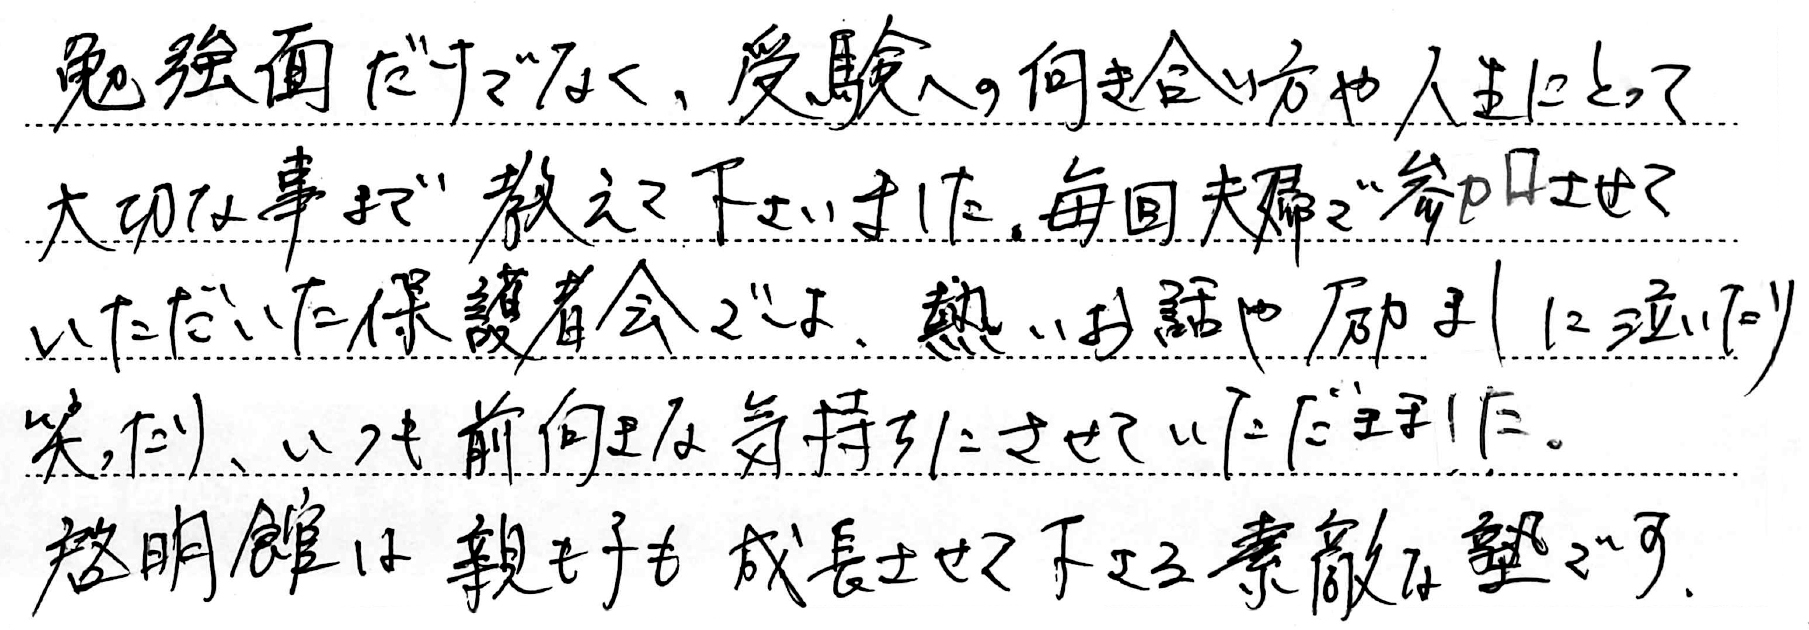 勉強面だけでなく、受験への向き合い方や人生にとって
大切な事まで教えて下さいました。毎回夫婦で参加させて
いただいた保護者会では、熱いお話や励ましに泣いたり
笑ったり、いつも前向きな気持ちにさせていただきました。
啓明館は親も子も成長させて下さる素敵な塾です。